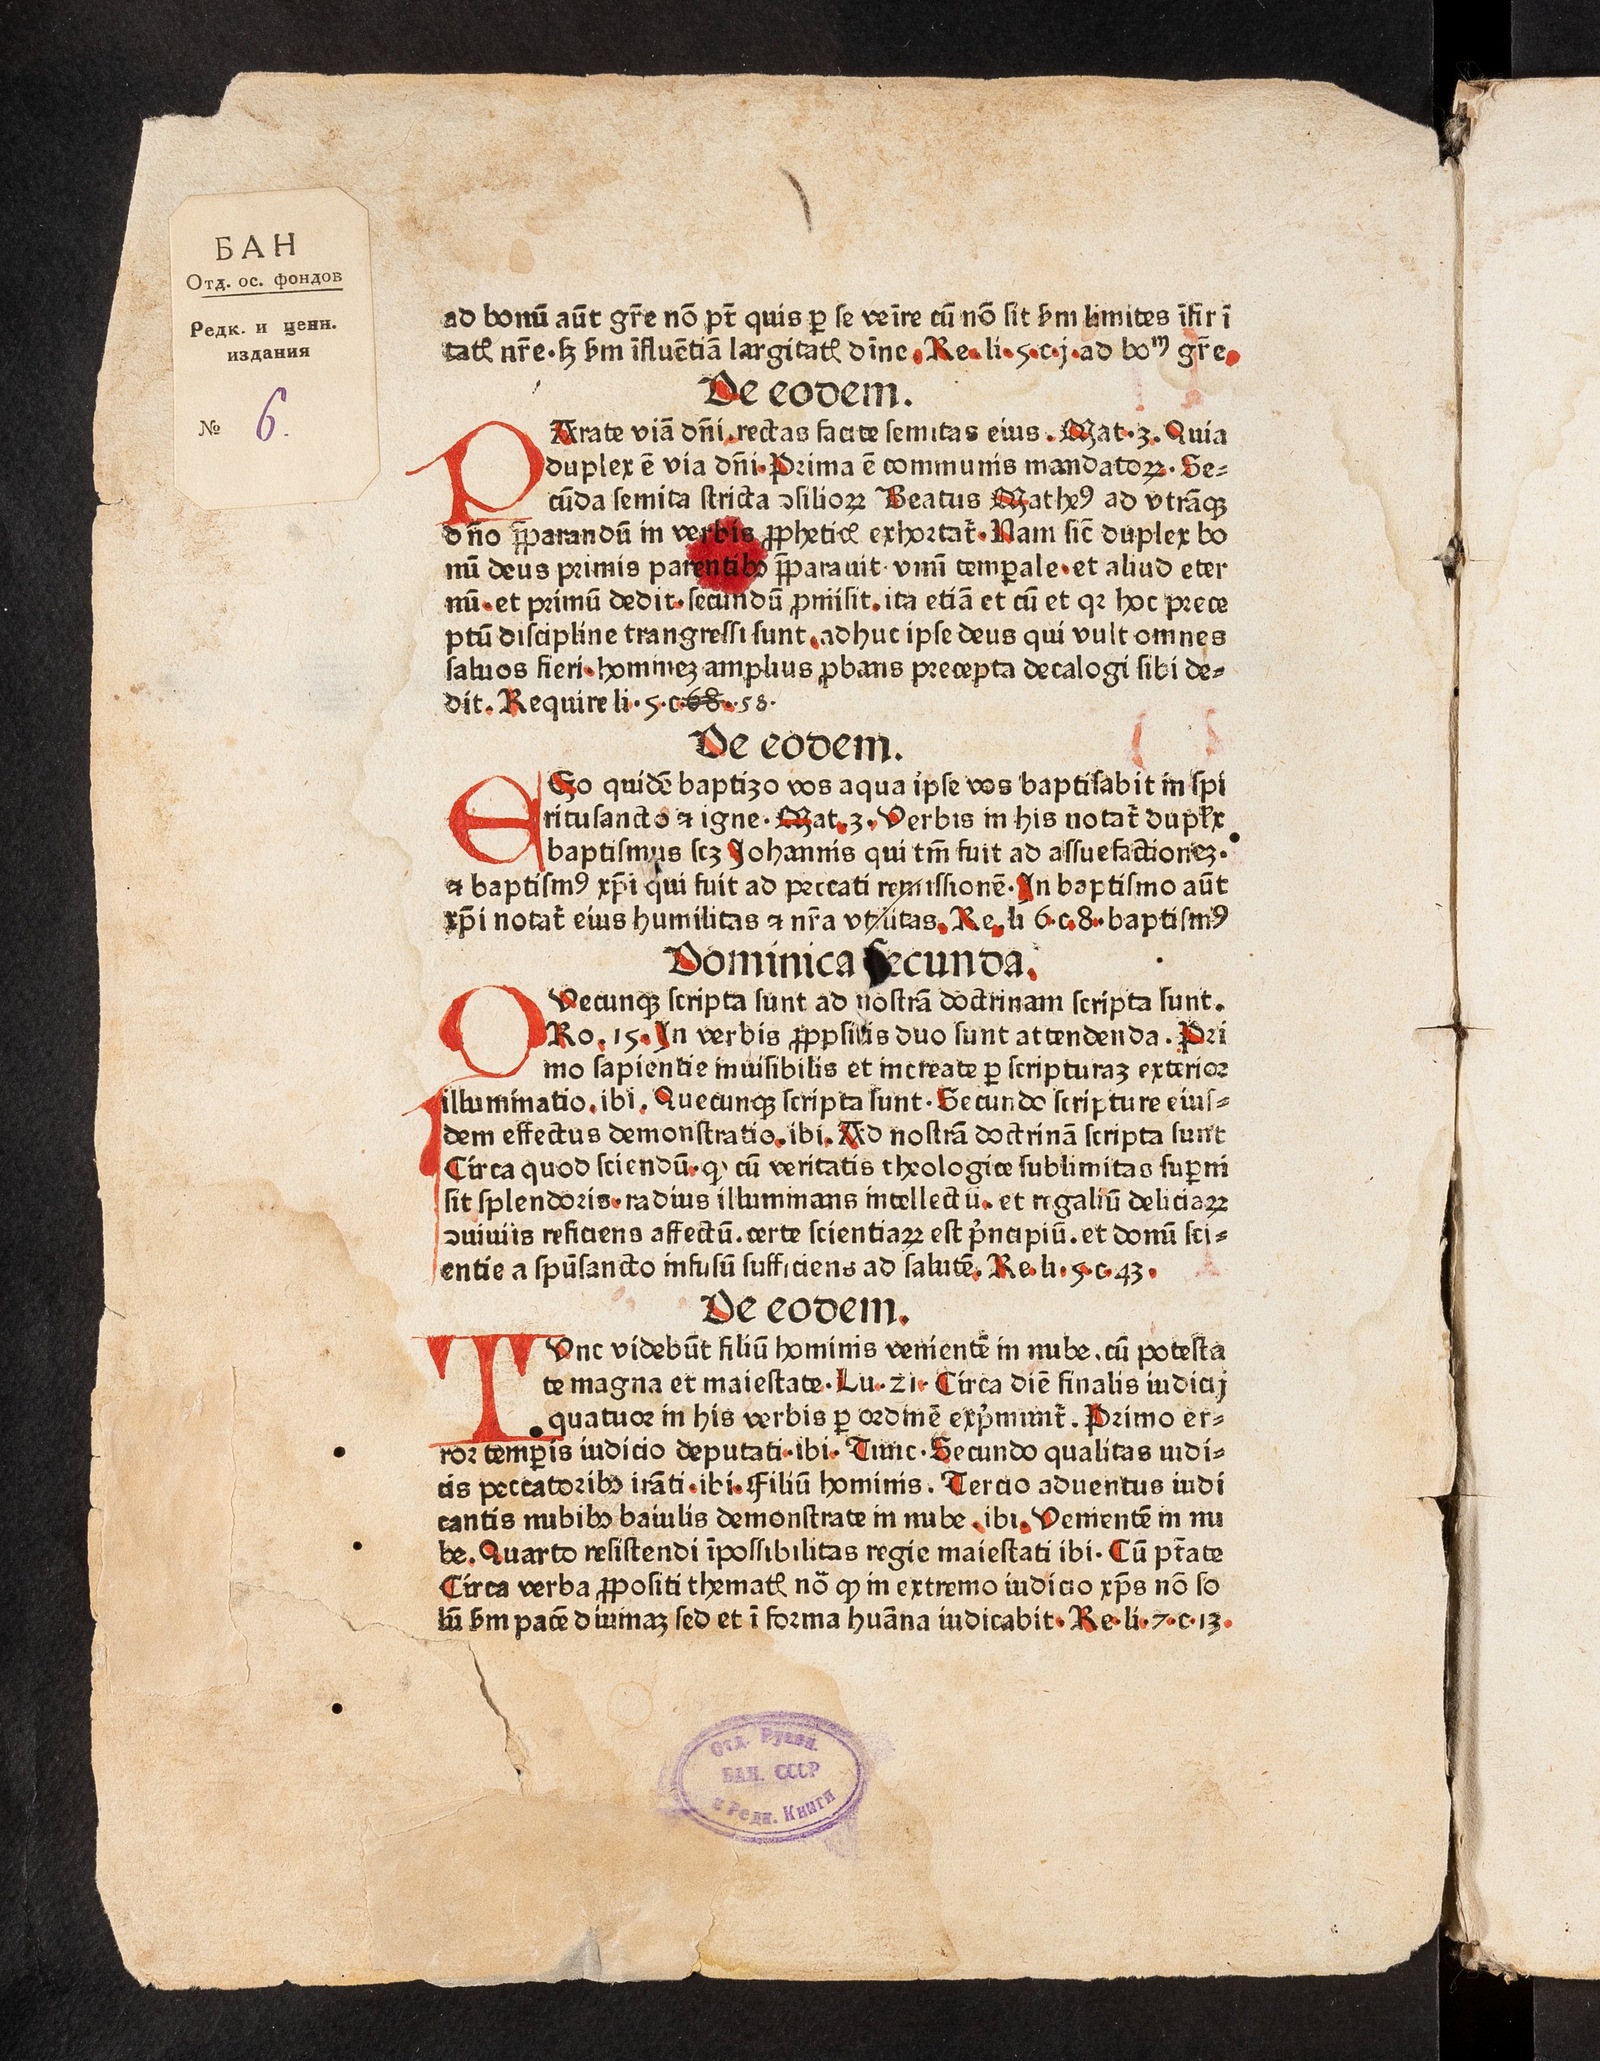 БАН
Отд. ос. фондов
Редк. и ценн.
издания
№ 6.
ad bonū aūt gr̄e nō pt̄ quis ꝑ se veīre cū nō sit ẜm limites īfir ī
tatꝭ nr̄e · sꝫ ẜm īfluētiā largitatꝭ dīne. Re. li. 5. c. j. ad boᵐ gr̄e.
De eodem.
PArate viā dn̄i. rectas facite semitas eius. Mat. 3. Quia
duplex ē via dn̄i. Prima ē communis mandatoꝝ. Se-
cūda semita stricta ↄsilioꝝ Beatus Matheꝰ ad vtrāqꝫ
dn̄o p̄parandū in verbis ꝓpheticꝭ exhortat᷑. Nam sic̄ duplex bo
nū deus primis parentibꝫ p̄parauit. vnū temꝑale. et aliud eter
nū. et primū dedit. secundū ꝓmisit. ita etiā et cū et qꝛ hoc prece
ptū discipline trangressi sunt. adhuc ipse deus qui vult omnes
saluos fieri. homineꝫ amplius ꝓbans precepta decalogi sibi de-
dit. Require li. 5. c. 68. 58.
De eodem.
EGo quidē baptizo vos aqua ipse vos baptisabit in spi
ritusancto ⁊ igne. Mat. 3. Verbis in his notat᷑ duplꝭx
baptismus scꝫ Johannis qui tm̄ fuit ad assuefactioneꝫ.
⁊ baptismꝰ xp̄i qui fuit ad peccati remissionē. In baptismo aūt
xp̄i notat᷑ eius humilitas ⁊ nr̄a vtilitas. Re. li 6. c. 8. baptismꝰ
Dominica secunda.
QVecunqꝫ scripta sunt ad nostrā doctrinam scripta sunt.
Ro. 15. In verbis ꝓppsitis duo sunt attendenda. Pri
mo sapientie inuisibilis et increate ꝑ scripturaꝫ exterior
illuminatio. ibi. Quecunqꝫ scripta sunt. Secundo scripture eius-
dem effectus demonstratio. ibi. Ad nostrā doctrinā scripta sunt
Circa quod sciendū. ꝙ cū veritatis theologice sublimitas suꝑni
sit splendoris. radius illuminans intellectū. et regaliū deliciaꝝ
ↄuiuiis reficiens affectū. certe scientiaꝝ est pͥncipiū. et donū sci-
entie a spūsancto infusū sufficiens ad salutē. Re. li. 5. c. 43.
De eodem.
TVnc videbūt filiū hominis venientē in nube. cū potesta
te magna et maiestate. Lu. 21. Circa diē finalis iudicij
quatuor in his verbis ꝑ ordinē expͥmunt᷑. Primo er-
ror temꝑis iudicio deputati. ibi. Tunc. Secundo qualitas iudi-
cis peccatoribꝫ irāti. ibi. Filiū hominis. Tercio aduentus iudi
cantis nubibꝫ baiulis demonstrate in nube. ibi. Venientē in nu
be. Quarto resistendi īpossibilitas regie maiestati ibi. Cū pt̄ate
Circa verba ꝓpositi thematꝭ nō ꝙ in extremo iudicio xp̄s nō so
lū ẜm pacē diuinaꝫ sed et ī forma huāna iudicabit. Re. li. 7. c. 13.
Отд. Рукоп.
БАН. СССР
и Редк. Книги